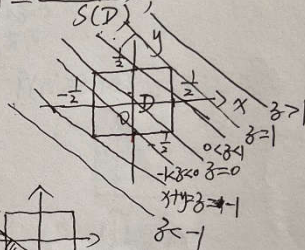 S(D)
y
1/2
-1/2
1/2
D
x
O
-1/2
z>1
z=1
0<z<1
z=0
-1<z<0
x+y=z=-1
z<-1